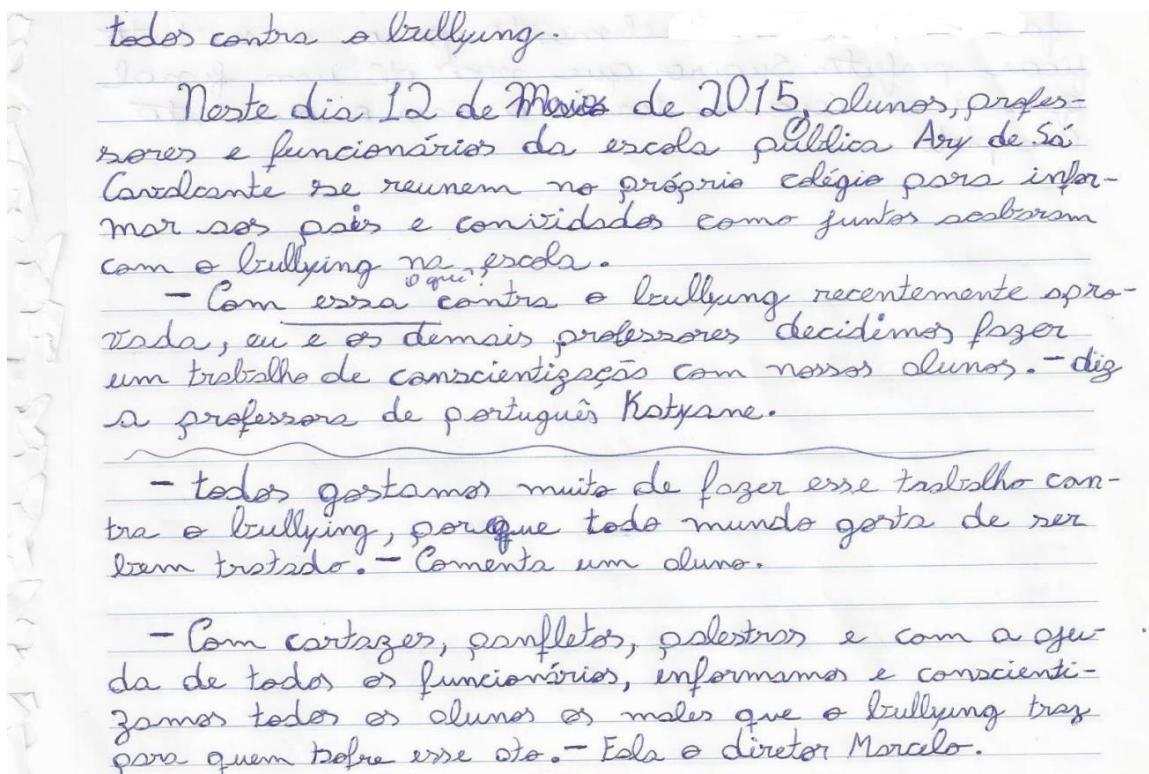 todos contra o bullying.
Neste dia 12 de Maio de 2015, alunos, profes-
sores e funcionários da escola pública Ary de Sá
Cavalcante se reunem no próprio colégio para infor-
mar aos pais e convidados como juntos acabaram
com o bullying na escola.
o quê?
- Com essa contra o bullying recentemente apro-
vada, eu e os demais professores decidimos fazer
um trabalho de conscientização com nossos alunos. - diz
a professora de português Katyane.
- todos gostamos muito de fazer esse trabalho con-
tra o bullying, porque todo mundo gosta de ser
bem tratado. - Comenta um aluno.
- Com cartazes, panfletos, palestras e com a aju-
da de todos os funcionários, informamos e conscienti-
zamos todos os alunos os males que o bullying traz
para quem sofre esse ato. - Fala o diretor Marcelo.